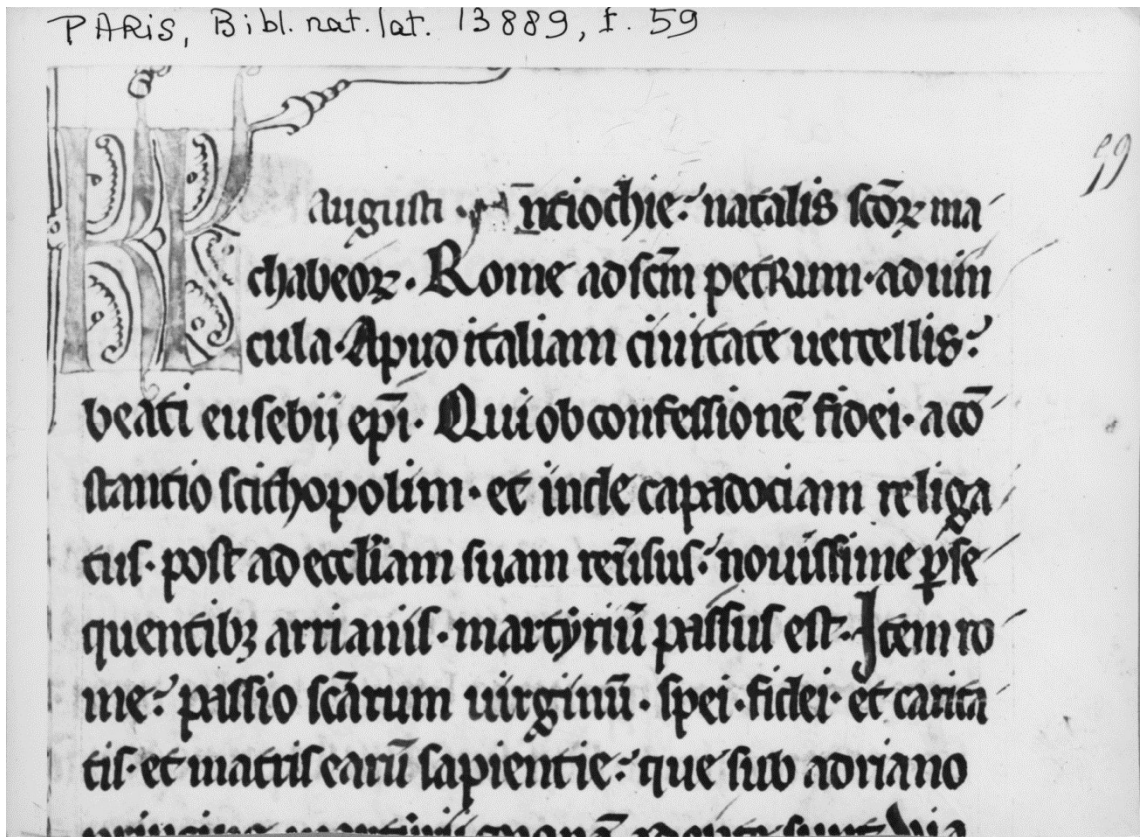 PARIS, Bibl. nat. lat. 13889, f. 59
59
KL augusti · ān̄tiochie: natalis sc̄oꝝ ma
chabeoꝝ · Rome ad sc̄m petrum · ad uin
cula · Apud italiam ciuitate uercellis:
beati eusebij ep̄i · Qui ob confessionē fidei · a cō
stantio scithopolim · et inde capadociam religa
tus · post ad eccl̄iam suam reu̾sus: nouissime ꝑse
quentibꝫ arrianis · martyriū passus est · Item ro
me: passio sc̄arum uirginū · spei · fidei · et carita
tis · et matris earū sapientie: que sub adriano
principe